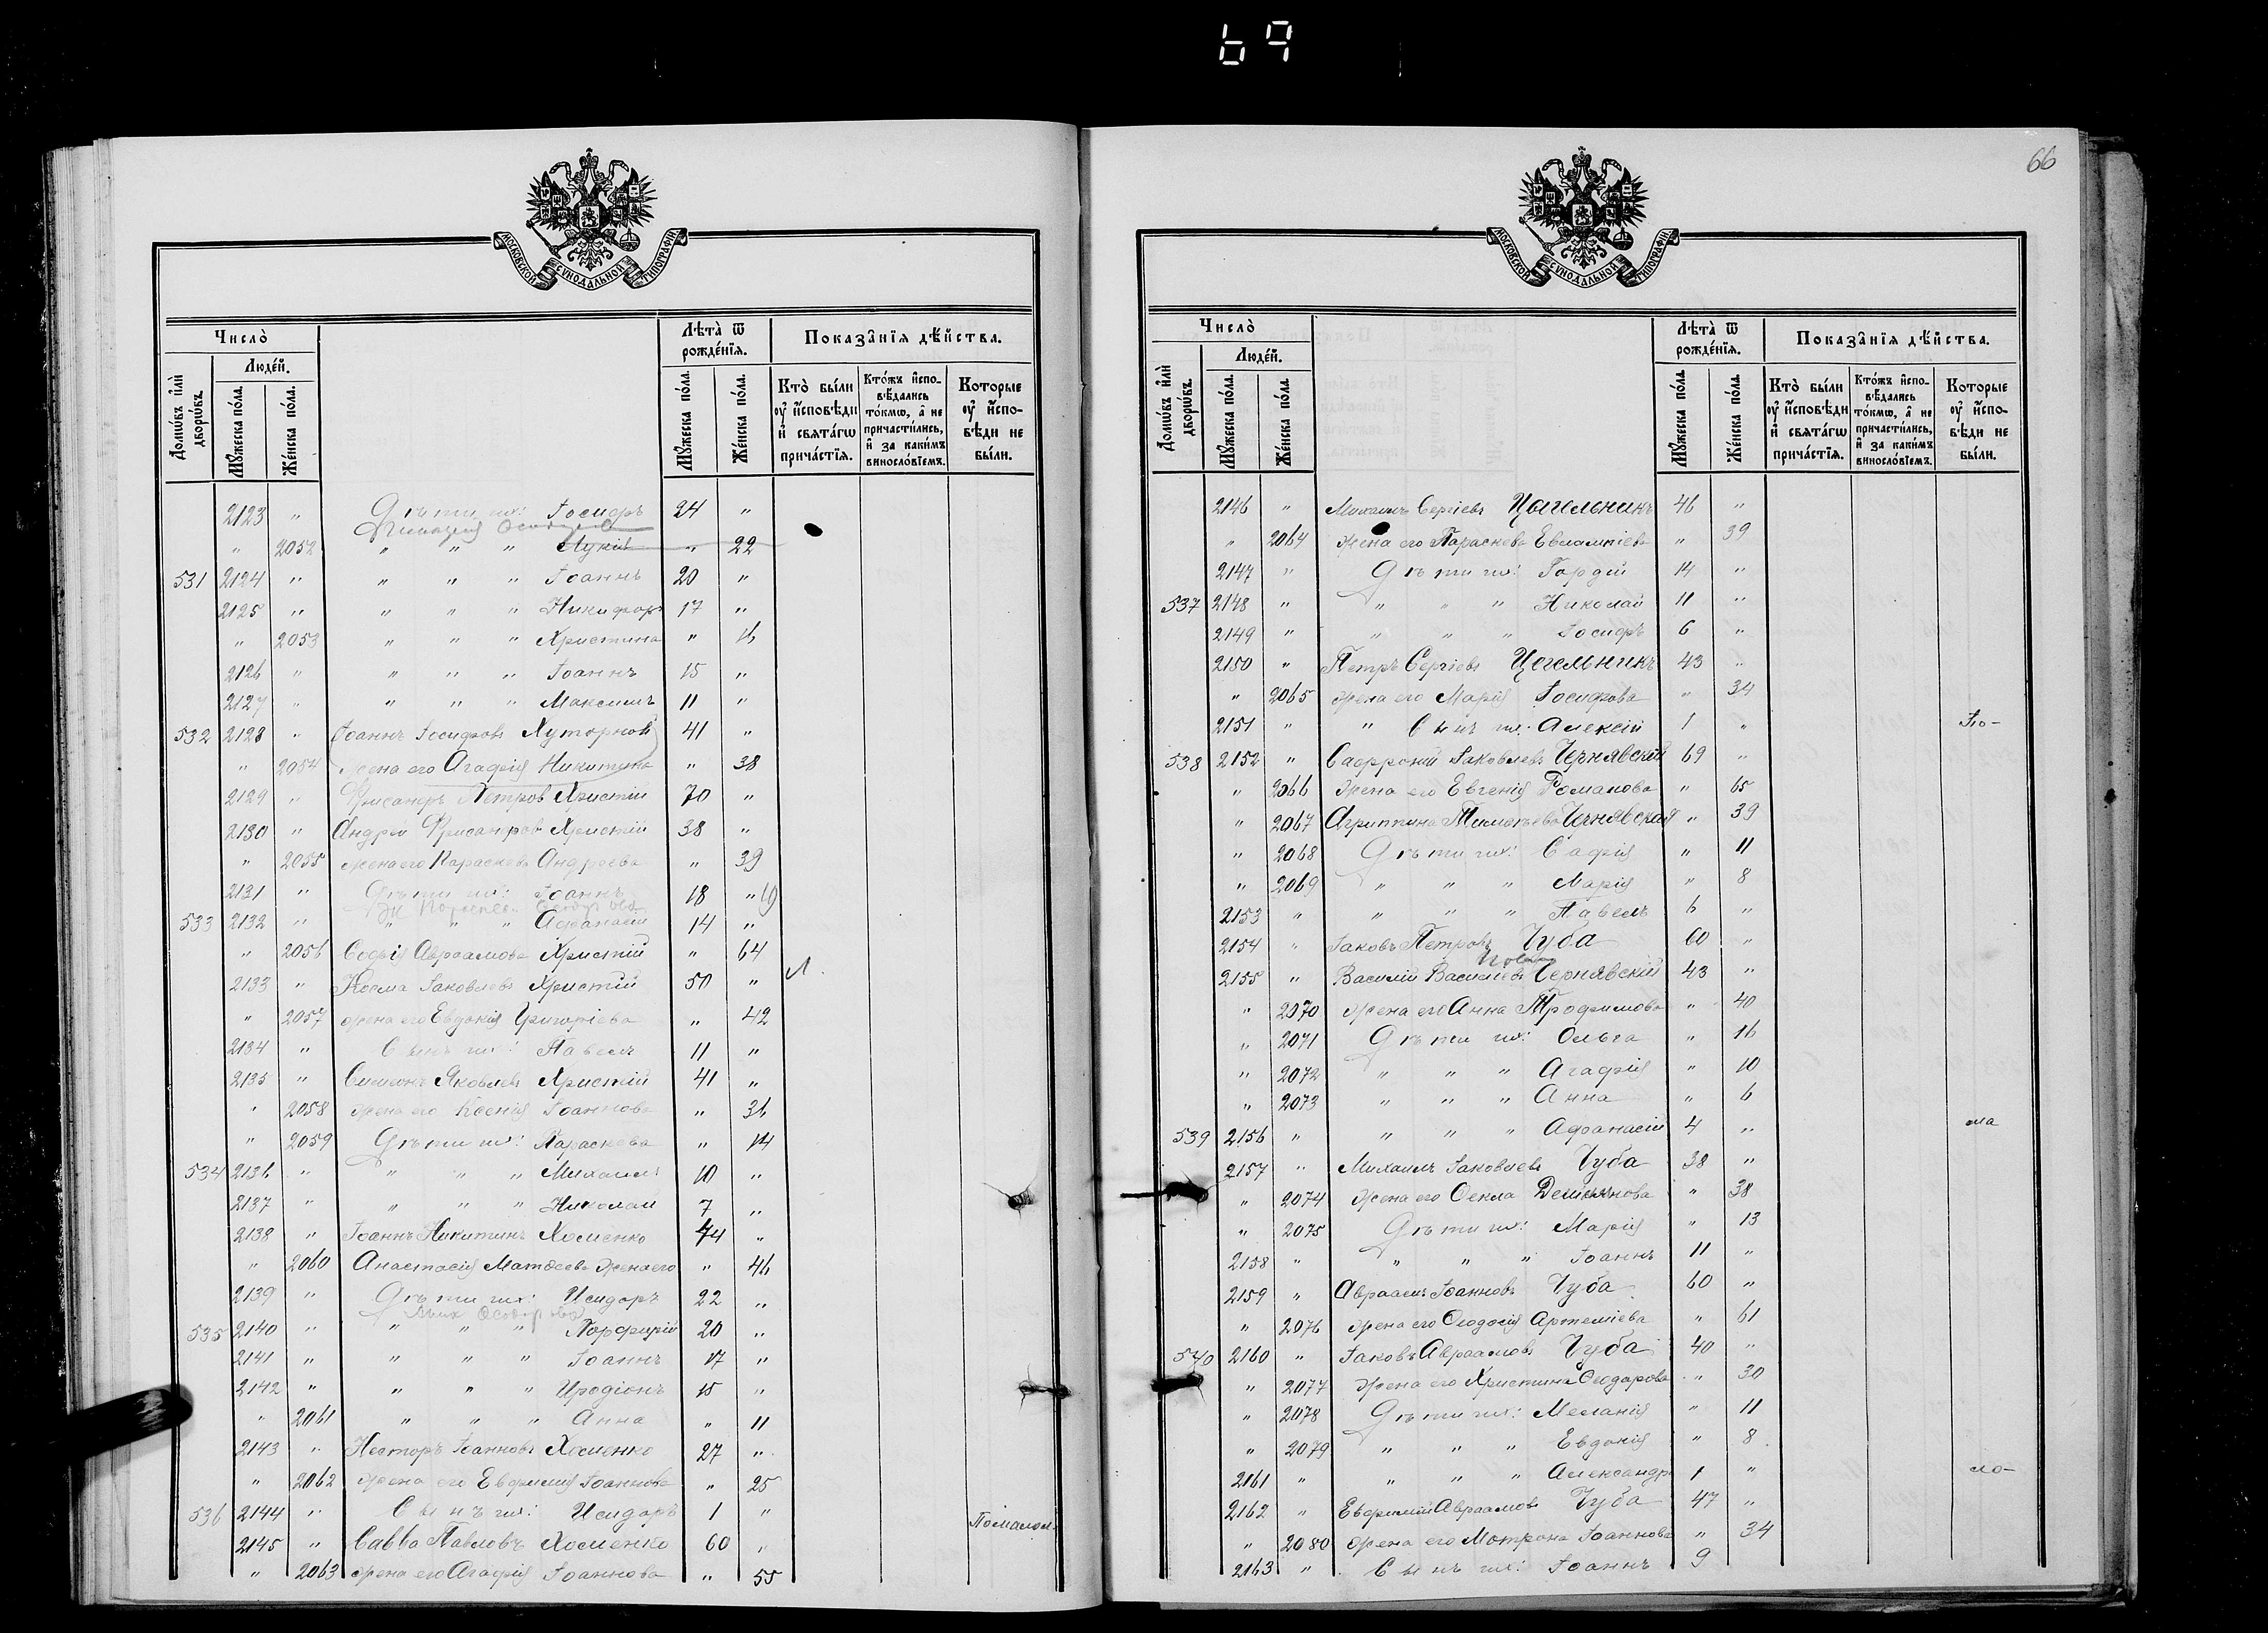 69
МОСКОВСКОЙ СѴНОДАЛЬНОЙ ТИПОГРАФІИ
Число̀
Людéй.
Домѡ́въ и҆лѝ дворѡ́въ.
Мꙋ́жеска по́ла.
Же́нска по́ла.
Лѣта̀ ѿ рожде́нїѧ.
Мꙋ́жеска по́ла.
Же́нска по́ла.
Показа̑нїѧ дѣ́йства.
Кто̀ бы́ли ᲂу҆ и҆сповѣ́ди и҆ свѧта́гѡ прича́стїѧ.
Кто́жъ и҆спо-вѣ́дались то́кмѡ, а҆ не причасти́лись, и҆ за каки́мъ виносло́вїемъ.
Которые ᲂу҆ и҆спо-вѣ́ди не бы́ли.
2123 " Дѣти их: Іосифъ 24 "
" 2052 " " " Лукія " 22
531 2124 " " " " Іоаннъ 20 "
2125 " " " " Никифоръ 17 "
" 2053 " " " Христина " 16
2126 " " " " Іоаннъ 15 "
2127 " " " " Максимъ 11 "
532 2128 " Іоаннъ Іосифовъ Хуторной 41 "
" 2054 жена его Агафія Никитина " 38
2129 " Петров Христій 70 "
2130 " Андрей Христій 38 "
" 2055 жена его Параскева Андреева " 39
2131 " Дѣти их: Іоаннъ 18 "
533 2132 " " " " Афанасій 14 "
" 2056 Софія Авраамова Христій " 64
2133 " Косма Іаковлевъ Христій 50 "
" 2057 жена его Евдокія Григоріева " 42
2134 " Сынъ их: Павелъ 11 "
2135 " Симеонъ Яковлевъ Христій 41 "
" 2058 жена его Ксенія Іоаннова " 36
" 2059 Дѣти их: Параскева " 14
534 2136 " " " " Михаилъ 10 "
2137 " " " " Николай 7 "
2138 " Іоаннъ Никитинъ Хоменко 44 "
" 2060 Анастасія Матѳеева жена его " 46
2139 " Дѣти их: Исидоръ 22 "
535 2140 " " " " Порфирій 20 "
2141 " " " " Іоаннъ 17 "
2142 " " " " Иродіонъ 15 "
" 2061 " " " Анна " 11
2143 " Несторъ Іоанновъ Хоменко 27 "
" 2062 жена его Евфимія Іоаннова " 25
536 2144 " Сынъ их: Исидоръ 1 "
Помалол.
2145 " Савва Павловъ Хоменко 60 "
" 2063 жена его Агафія Іоаннова " 55
66
МОСКОВСКОЙ СѴНОДАЛЬНОЙ ТИПОГРАФІИ
Число̀
Людéй.
Домѡ́въ и҆лѝ дворѡ́въ.
Мꙋ́жеска по́ла.
Же́нска по́ла.
Лѣта̀ ѿ рожде́нїѧ.
Мꙋ́жеска по́ла.
Же́нска по́ла.
Показа̑нїѧ дѣ́йства.
Кто̀ бы́ли ᲂу҆ и҆сповѣ́ди и҆ свѧта́гѡ прича́стїѧ.
Кто́жъ и҆спо-вѣ́дались то́кмѡ, а҆ не причасти́лись, и҆ за каки́мъ виносло́вїемъ.
Которые ᲂу҆ и҆спо-вѣ́ди не бы́ли.
2146 " Михаилъ Сергіевъ Цыгельникъ 46 "
" 2064 жена его Параскева Евлампіева " 39
2147 " Дѣти их: Гордій 14 "
537 2148 " " " " Николай 11 "
2149 " " " " Іосифъ 6 "
2150 " Петръ Сергіевъ Цегельникъ 43 "
" 2065 жена его Марія Іосифова " 34
2151 " " Сынъ их: Алексій 1 " По-
538 2152 " Саффроній Іаковлевъ Чернявскій 69 "
" 2066 жена его Евгенія Романова " 65
" 2067 Агриппина Тимоѳеева Чернявская " 39
" 2068 Дѣти их: Софія " 11
" 2069 " " " Марія " 8
2153 " " " " Павелъ 6 "
2154 " Іаковъ Петровъ Чуба 60 "
2155 " Василій Васильевъ Чернявскій 43 "
" 2070 жена его Анна Трофимова " 40
" 2071 Дѣти их: Ольга " 16
" 2072 " " " Агафія " 10
" 2073 " " " Анна " 6
539 2156 " " " " Афанасій 4 " ма
2157 " Михаилъ Іаковлевъ Чуба 38 "
" 2074 жена его Ѳекла " 38
" 2075 Дѣти их: Марія " 13
2158 " " " " Іоаннъ 11 "
2159 " Авраамъ Іоанновъ Чуба 60 "
" 2076 жена его Ѳеодосія Артеміева " 61
540 2160 " Іаковъ Авраамовъ Чуба 40 "
" 2077 жена его Христина Ѳеодорова " 30
" 2078 Дѣти их: Меланія " 11
" 2079 " " " Евдокія " 8
2161 " " " " Александръ 1 " ло-
2162 " Евфимій Авраамовъ Чуба 47 "
" 2080 жена его Мотрона Іоаннова " 34
2163 " Сынъ их: Іоаннъ 9